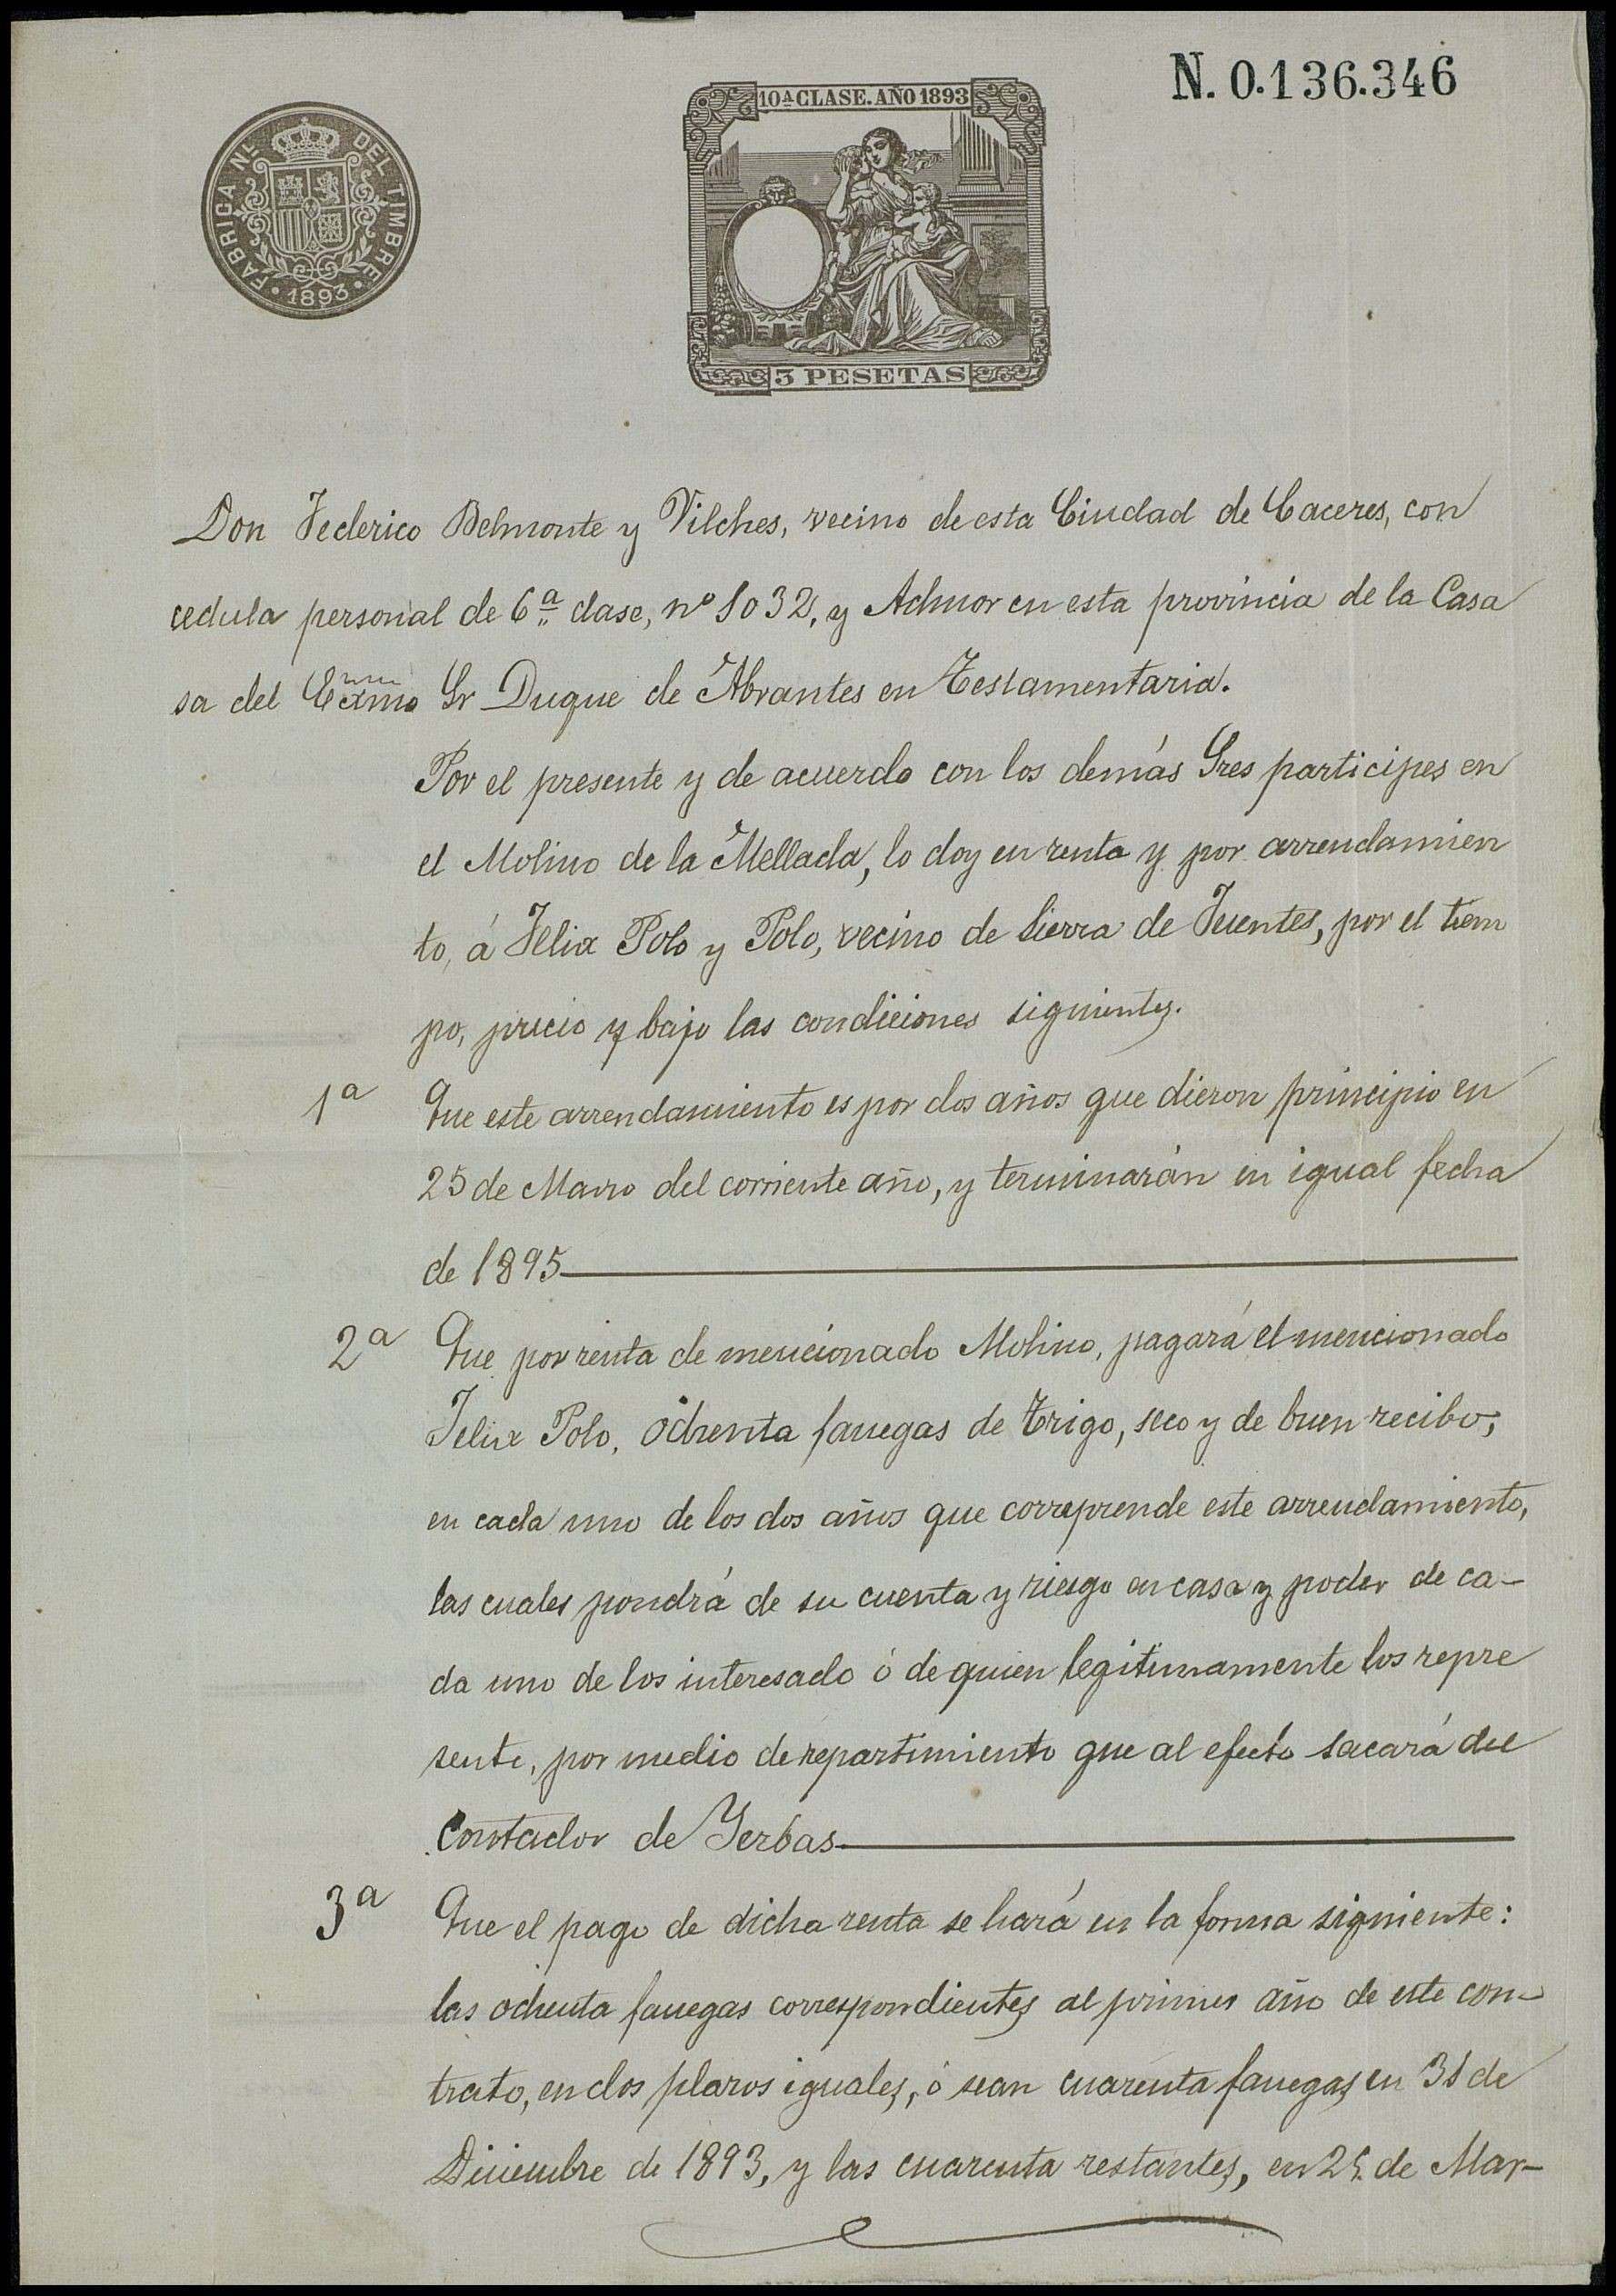 N. 0.136.346
10ª CLASE. AÑO 1893
FABRICA NL. DEL TIMBRE
· 1893 ·
3 PESETAS
Don Federico Belmonte y Vilches, vecino de esta Ciudad de Caceres, con
cedula personal de 6ª clase, nº 1032, y Admor en esta provincia de la Casa
sa del Exmo Sr Duque de Abrantes en Testamentaria.
Por el presente y de acuerdo con los demás Sres participes en
el Molino de la Mellada, lo doy en renta y por arrendamien
to, á Felix Polo y Polo, vecino de Sierra de Fuentes, por el tiem
po, precio y bajo las condiciones siguientes.
1ª Que este arrendamiento es por dos años que dieron principio en
25 de Marzo del corriente año, y terminarán en igual fecha
de 1895
2ª Que por renta de mencionado Molino, pagará el mencionado
Felix Polo, ochenta fanegas de trigo, seco y de buen recibo,
en cada uno de los dos años que correprende este arrendamiento,
las cuales pondrá de su cuenta y riesgo en casa y poder de ca-
da uno de los interesado ó de quien legitimamente los repre
sente, por medio de repartimiento que al efecto sacará del
Contador de Yerbas
3ª Que el pago de dicha renta se hará en la forma siguiente:
las ochenta fanegas correspondientes al primer año de este con-
trato, en dos plazos iguales, ó sean cuarenta fanegas en 31 de
Diciembre de 1893, y las cuarenta restantes, en 25 de Mar-